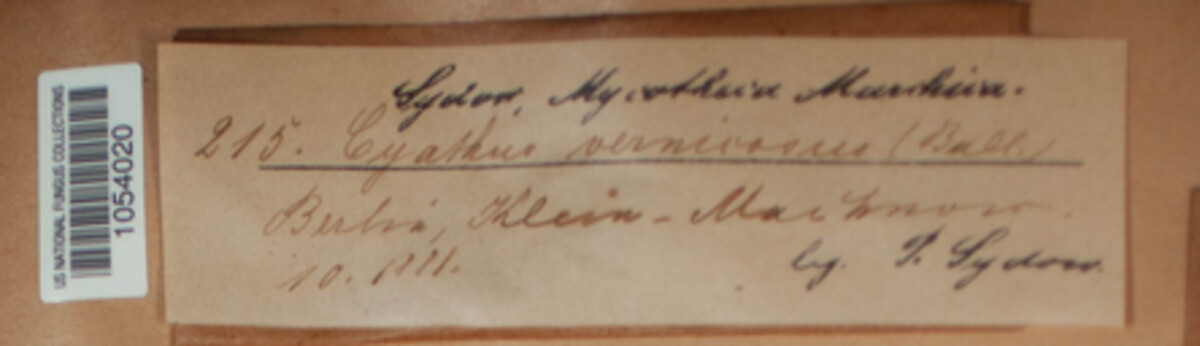 US NATIONAL FUNGUS COLLECTIONS
1054020
Sydow, Mycotheca Marchica.
215. Cyathus vernicosus (Bull.)
Berlin, Klein-Machnow.
10. 1881.
leg. P. Sydow.